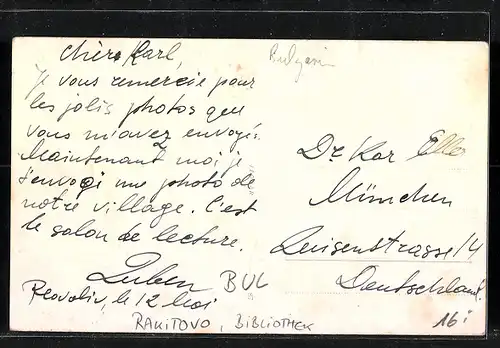 Bulgarien
chère Karl,
Je vous remercie pour
les jolis photos que
vous m'avez envoyé.
Maintenant moi je
t'envoye une photo de
notre village. C'est
le salon de lecture.
Luben
le 12 Mai
Dr. Kar Eller
München
Luisenstrasse 14
Deutschland.
BUL
RAKITOVO, BIBLIOTHEK